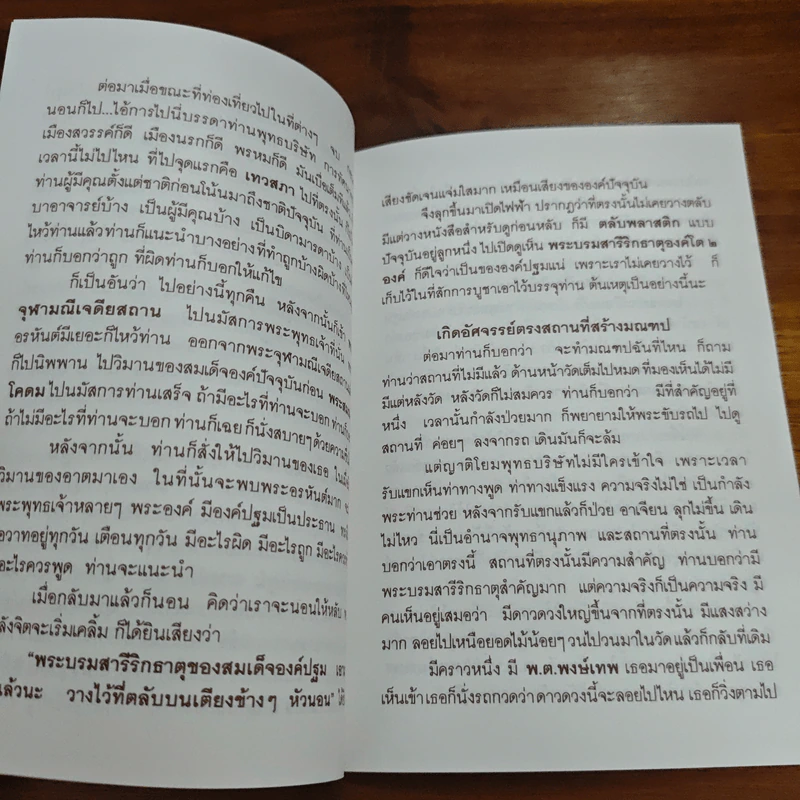 ต่อมาเมื่อขณะที่ท่องเที่ยวไปในที่ต่างๆ จบ
นอนก็ไป...ไอ้การไปนี่บรรดาท่านพุทธบริษัท
เมืองสวรรค์ก็ดี เมืองนรกก็ดี พรหมก็ดี มันเบื่อเต็มที
เวลานี้ไม่ไปไหน ที่ไปจุดแรกคือ เทวสภา ไปที่ตรงนั้น
ท่านผู้มีคุณตั้งแต่ชาติก่อนโน้นมาถึงชาติปัจจุบัน
บาอาจารย์บ้าง เป็นผู้มีคุณบ้าง เป็นบิดามารดาบ้าง
ไหว้ท่านแล้วท่านก็แนะนำบางอย่างที่ทำถูกบ้างผิดบ้าง
ท่านก็บอกว่าถูก ที่ผิดท่านก็บอกให้แก้ไข
ก็เป็นอันว่า ไปอย่างนี้ทุกคืน หลังจากนั้นก็เข้า
จุฬามณีเจดียสถาน ไปนมัสการพระพุทธเจ้าที่นั่น
อรหันต์มีเยอะก็ไหว้ท่าน ออกจากพระจุฬามณีเจดียสถาน
ก็ไปนิพพาน ไปวิมานของสมเด็จองค์ปัจจุบันก่อน
โคดม ไปนมัสการท่านเสร็จ ถ้ามีอะไรที่ท่านจะบอก ท่านก็
ถ้าไม่มีอะไรที่ท่านจะบอก ท่านก็เฉย ก็นั่งสบายๆ ด้วยความ
หลังจากนั้น ท่านก็สั่งให้ไปวิมานของเธอ
วิมานของอาตมาเอง ในที่นั้นจะพบพระอรหันต์มาก
พระพุทธเจ้าหลายๆ พระองค์ มีองค์ปฐมเป็นประธาน
อวาทอยู่ทุกวัน เตือนทุกวัน มีอะไรผิด มีอะไรถูก มีอะไรควร
อะไรควรพูด ท่านจะแนะนำ
เมื่อกลับมาแล้วก็นอน คิดว่าเราจะนอนให้หลับ
ลังจิตจะเริ่มเคลิ้ม ก็ได้ยินเสียงว่า
"พระบรมสารีริกธาตุของสมเด็จองค์ปฐม
แล้วนะ วางไว้ที่ตลับบนเตียงข้างๆ หัวนอน"
เสียงชัดเจนแจ่มใสมาก เหมือนเสียงขององค์ปัจจุบัน
จึงลุกขึ้นมาเปิดไฟฟ้า ปรากฏว่าที่ตรงนั้นไม่เคยวางตลับ
มีแต่วางหนังสือสำหรับดูก่อนหลับ ก็มี ตลับพลาสติก แบบ
ปัจจุบันอยู่ลูกหนึ่ง ไปเปิดดูเห็น พระบรมสารีริกธาตุองค์โต ๒
องค์ ก็ดีใจว่าเป็นขององค์ปฐมแน่ เพราะเราไม่เคยวางไว้ ก็
เก็บไว้ในที่สักการบูชาเอาไว้บรรจุท่าน ต้นเหตุเป็นอย่างนี้นะ
เกิดอัศจรรย์ตรงสถานที่สร้างมณฑป
ต่อมาท่านก็บอกว่า จะทำมณฑปฉันที่ไหน ก็ถาม
ท่านว่าสถานที่ไม่มีแล้ว ด้านหน้าวัดเต็มไปหมด ที่มองเห็นได้ไม่มี
มีแต่หลังวัด หลังวัดก็ไม่สมควร ท่านก็บอกว่า มีที่สำคัญอยู่ที่
หนึ่ง เวลานั้นกำลังป่วยมาก ก็พยายามให้พระขับรถไป ไปดู
สถานที่ ค่อยๆ ลงจากรถ เดินมันก็จะล้ม
แต่ญาติโยมพุทธบริษัทไม่มีใครเข้าใจ เพราะเวลา
รับแขกเห็นท่าทางพูด ท่าทางแข็งแรง ความจริงไม่ใช่ เป็นกำลัง
พระท่านช่วย หลังจากรับแขกแล้วก็ป่วย อาเจียน ลุกไม่ขึ้น เดิน
ไม่ไหว นี่เป็นอำนาจพุทธานุภาพ และสถานที่ตรงนั้น ท่าน
บอกว่าเอาตรงนี้ สถานที่ตรงนั้นมีความสำคัญ ท่านบอกว่ามี
พระบรมสารีริกธาตุสำคัญมาก แต่ความจริงก็เป็นความจริง มี
คนเห็นอยู่เสมอว่า มีดาวดวงใหญ่ขึ้นจากที่ตรงนั้น มีแสงสว่าง
มาก ลอยไปเหนือยอดไม้น้อยๆ วนไปวนมาในวัด แล้วก็กลับที่เดิม
มีคราวหนึ่ง มี พ.ต.พงษ์เทพ เธอมาอยู่เป็นเพื่อน เธอ
เห็นเข้า เธอก็นั่งรถกวดว่า ดาวดวงนี้จะลอยไปไหน เธอก็วิ่งตามไป